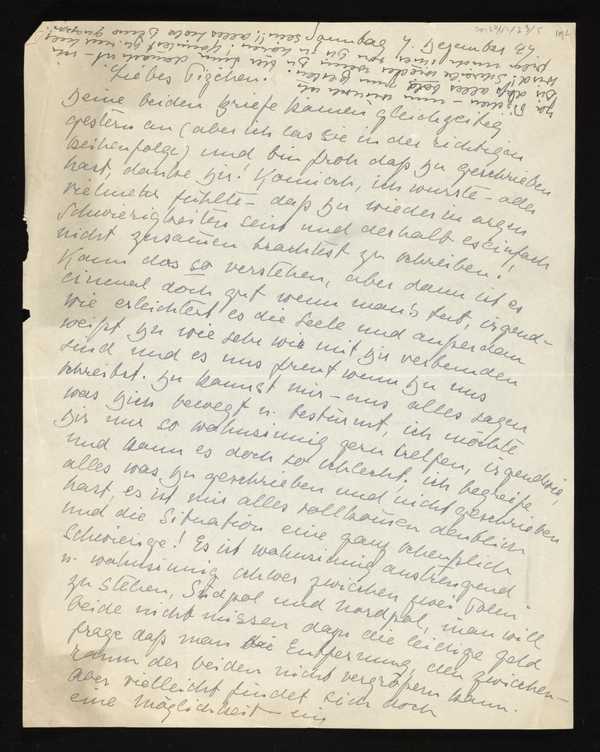 Sonntag 4. Dezember 68
Liebes Tigchen.
Deine beiden Briefe kamen gleichzeitig
gestern an (aber ich las sie in der richtigen
Reihenfolge) und bin froh daß Du geschrieben
hast, danke Dir! Komisch, ich wusste – oder
vielmehr fühlte – daß Du wieder in argen
Schwierigkeiten seist und deshalb es einfach
nicht zusamen brachtest zu schreiben!
Kann das so verstehen, aber dann ist es
einmal doch gut wenn man's tut, irgend-
wie erleichtert es die Seele und ausserdem
weißt Du wie sehr wir mit Dir verbunden
sind und es uns freut wenn Du uns
schreibst. Du kannst mir – uns alles sagen
was Dich bewegt u. bestürmt, ich möchte
Dir nur so wahnsinnig gern helfen, irgendwie,
und kann es doch so schlecht. Ich begreife
alles was Du geschrieben und nicht geschrieben
hast, es ist mir alles vollkomen denklich
und die Situation eine ganz scheusslich
schwierige! Es ist wahnsinnig anstrengend
u. wahnsinnig schwer zwischen zwei Polen
zu stehen, Südpol und Nordpol, man will
beide nicht missen dazu die leidige Geld
frage daß man die Entfernung, den Zwischen-
raum der beiden nicht vergrößern kann.
Aber vielleicht findet sich doch
eine Möglichkeit – ein